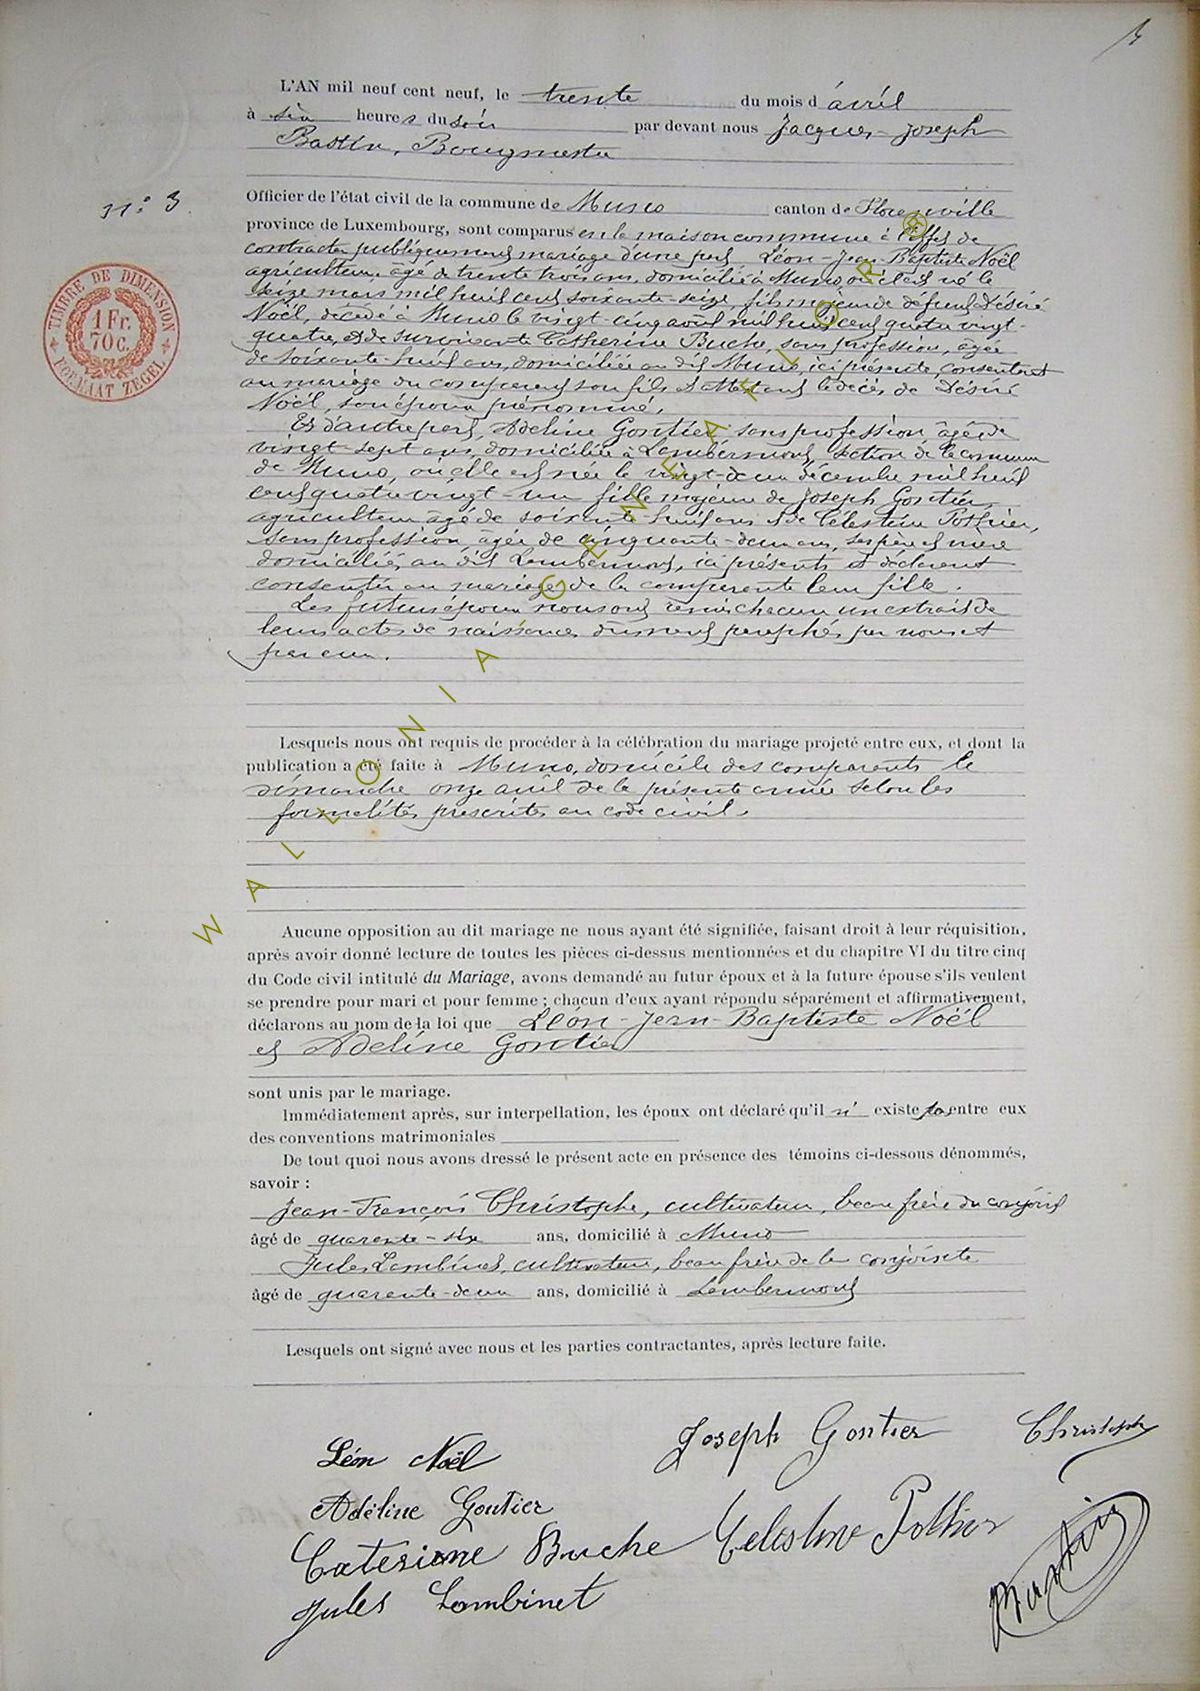 L'AN mil neuf cent neuf, le trente du mois d'avril
à six heures du soir par devant nous Jacques-Joseph
Bastin, Bourgmestre
N° 3
Officier de l'état civil de la commune de Muno canton de Florenville
province de Luxembourg, sont comparus en la maison commune à l'effet de
contracter publiquement mariage d'une part Léon-Jean-Baptiste Noël
agriculteur âgé de trente trois ans, domicilié à Muno où il est né le
seize mars mil huit cent soixante-seize, fils majeur de défunt Désiré
Noël, décédé à Muno le vingt-cinq août mil huit cent quatre vingt-
quatre, et de survivante Catherine Buche, sans profession, âgée
de soixante-huit ans, domiciliée au dit Muno, ici présente, consentant
au mariage du comparent son fils et attestant le décès de Désiré
Noël, son époux prénommé.
Et d'autre part, Adeline Gontier sans profession âgée de
vingt-sept ans, domiciliée à Lambermont, section de la commune
de Muno, où elle est née le vingt-deux décembre mil huit
cent quatre vingt-un fille majeure de Joseph Gontier
agriculteur âgé de soixante-huit ans et de Célestine Pothier,
sans profession âgée de cinquante-deux ans, ses père et mère
domiciliés au dit Lambermont, ici présents et déclarant
consentir au mariage de la comparente leur fille.
Les futurs époux nous ont remis chacun un extrait de
leurs actes de naissance dûment paraphés par nous et
par eux.
Lesquels nous ont requis de procéder à la célébration du mariage projeté entre eux, et dont la
publication a été faite à Muno, domicile des comparents le
dimanche onze avril de la présente année selon les
formalités prescrites au code civil.
Aucune opposition au dit mariage ne nous ayant été signifiée, faisant droit à leur réquisition,
après avoir donné lecture de toutes les pièces ci-dessus mentionnées et du chapitre VI du titre cinq
du Code civil intitulé du Mariage, avons demandé au futur époux et à la future épouse s'ils veulent
se prendre pour mari et pour femme ; chacun d'eux ayant répondu séparément et affirmativement,
déclarons au nom de la loi que Léon-Jean-Baptiste Noël
et Adeline Gontier
sont unis par le mariage.
Immédiatement après, sur interpellation, les époux ont déclaré qu'il n' existe pas entre eux
des conventions matrimoniales
De tout quoi nous avons dressé le présent acte en présence des témoins ci-dessous dénommés,
savoir :
Jean-François Christophe, cultivateur, beau frère du conjoint
âgé de quarante-six ans, domicilié à Muno
Jules Lambinet, cultivateur, beau frère de la conjointe
âgé de quarante-deux ans, domicilié à Lambermont
Lesquels ont signé avec nous et les parties contractantes, après lecture faite.
Léon Noël
Joseph Gontier
Christophe
Adéline Goutier
Caterinne Buche
Celestine Pothier
Jules Lambinet
Bastin
TIMBRE DE DIMENSION
1 Fr.
70 c.
FORMAAT ZEGEL
WALLONIA GENEAFLOR®